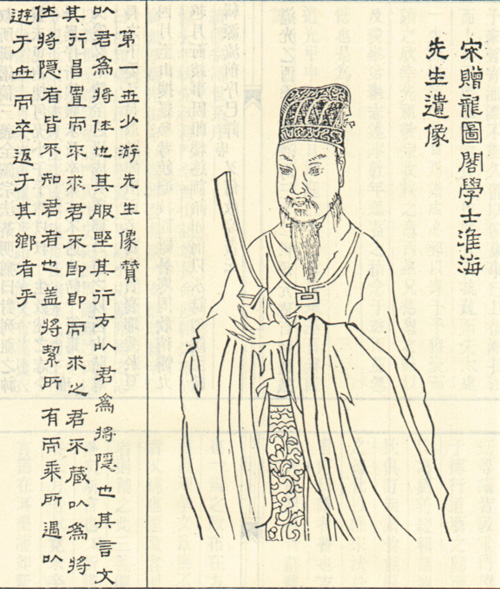 宋贈龍圖閣學士淮海
先生遺像
第一世少游先生像贊
以君爲將仕也其服野其行方以君爲將隱也其言文
其行昌置而不求君不即即而求之君不藏以爲將
仕將隱者皆不知君者也蓋將挈所有而乘所遇以
遊于世而卒返于其鄉者乎